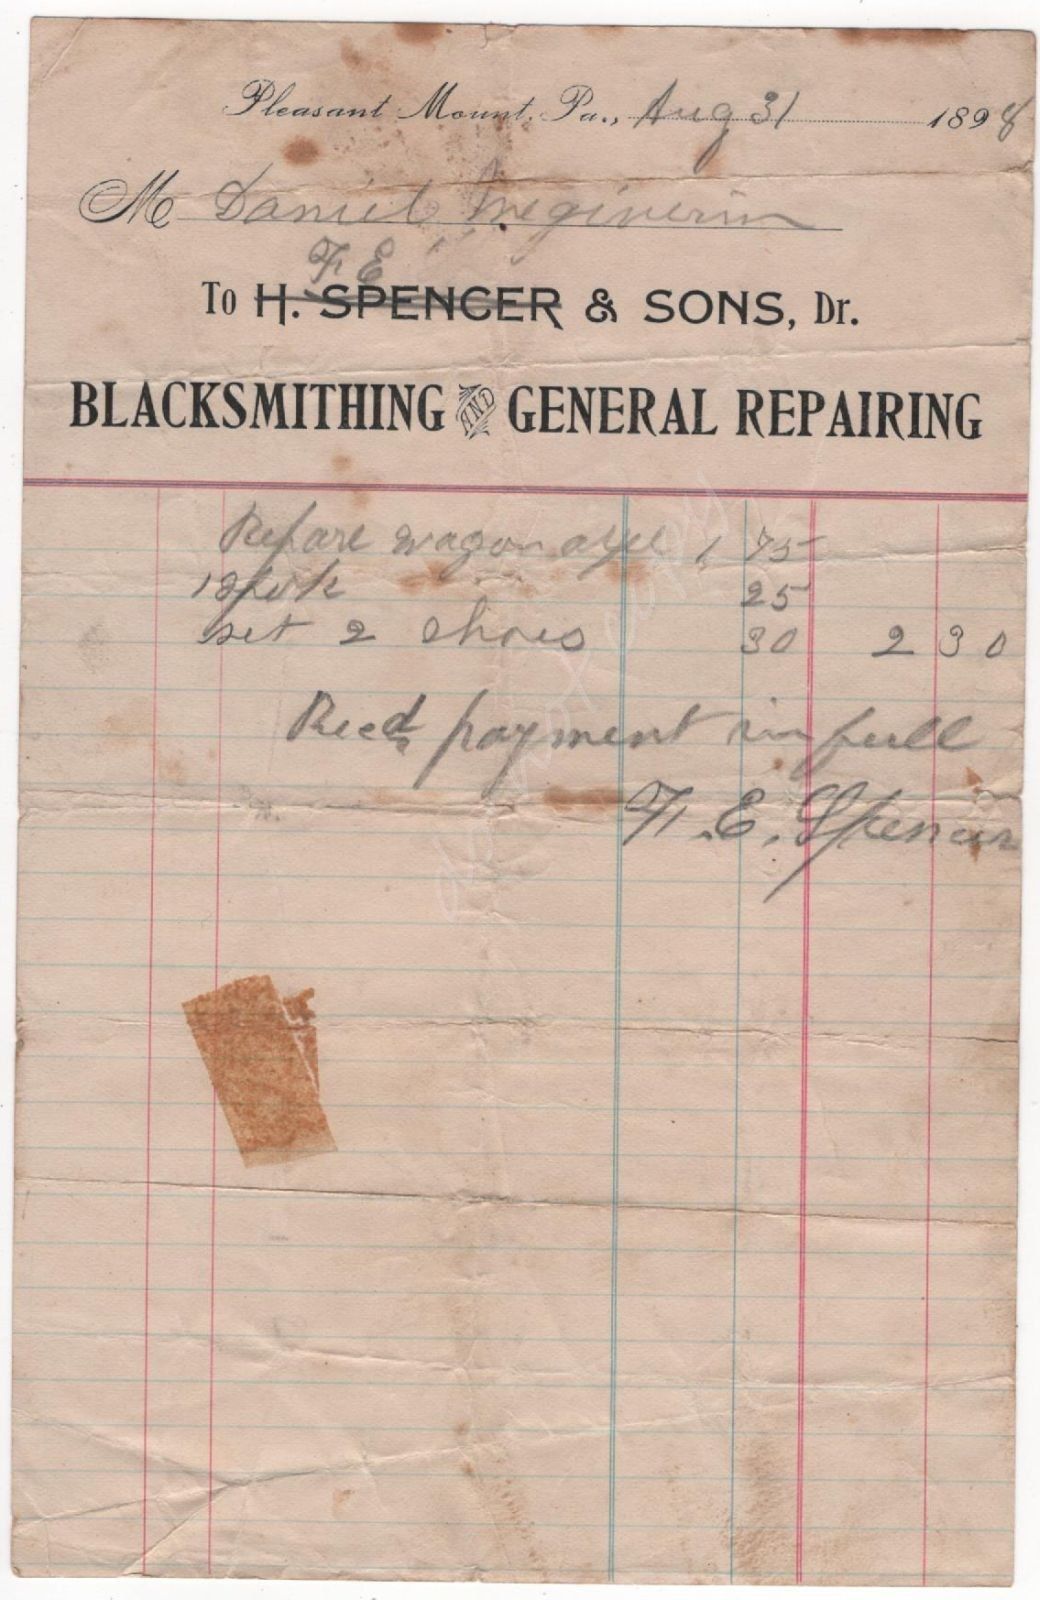 Pleasant Mount, Pa., Aug 31 1898
M Daniel Megiverin
F E
To H. SPENCER & SONS, Dr.
BLACKSMITHING AND GENERAL REPAIRING
Repare wagon axel 1 75
1 spok 25
set 2 shoes 30 2 30
Recd payment in full
F. E. Spencer